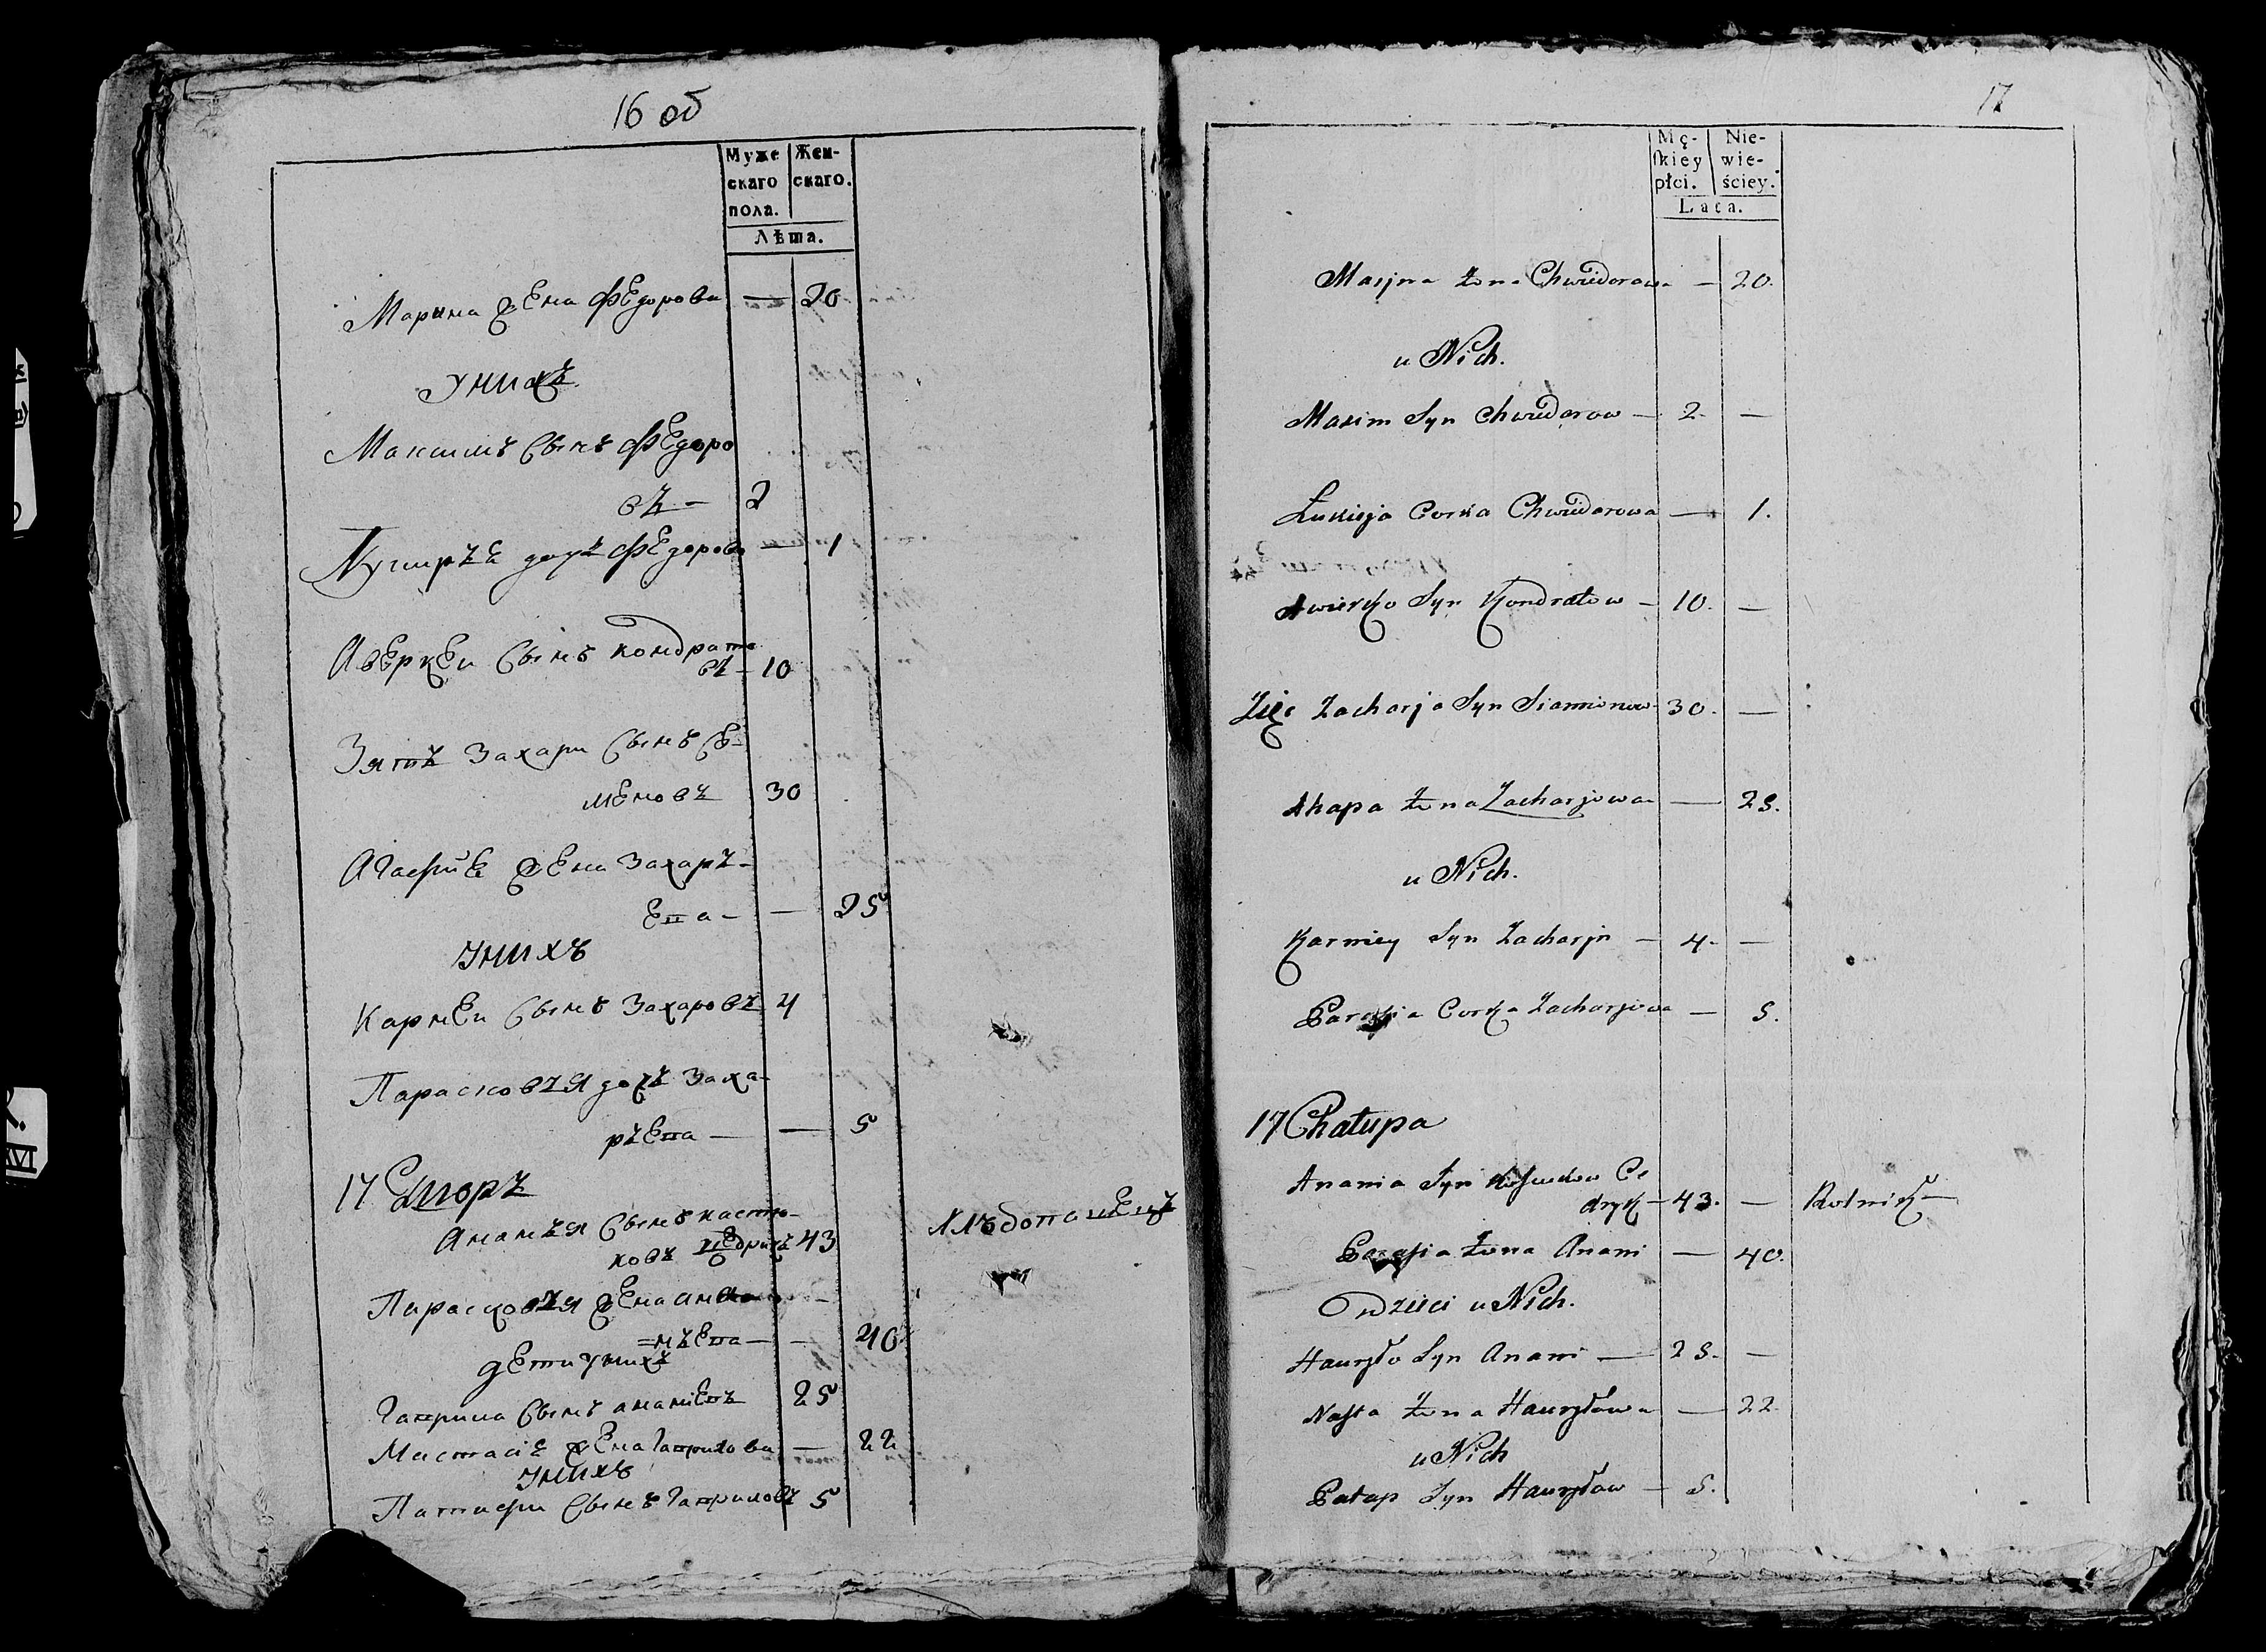 16 об
Муже
скаго
пола.
Жен-
скаго.
Лѣта.
Марина жена Федорова — 20
У нихъ
Максимъ сынъ Федоро
въ — 2
дочь Федорова — 1
Аверкеи сынъ Кондрато
въ — 10
Зять Захари сынъ Се-
меновъ 30
Агафиѣ жена Захарь-
ева — — 25
У нихъ
Карнеи сынъ Захаровъ 4
Парасковъя дочь Заха-
рьева — — 5
17 Дворъ
Ананъя сынъ Касто-
ковъ Цедрикъ 43 Хлѣбопашецъ
Парасковъя жена Анан
=нъева — — 40
дети у нихъ
Гаврила сынъ Ананiевъ 25
Настасiѣ жена Гаврилова — 22
У нихъ
сынъ Гавриловъ 5
17
Mę-
skiey
płci.
Nie-
wie-
ściey.
Lata.
Maryna żona Chwiedorowa — 20.
u Nich.
Maxim Syn Chwiedorow — 2. —
Łukieja Corka Chwiedorowa — 1.
Awierko Syn Kondratow — 10. —
Zięc Zacharja Syn Siamionow 30. —
Ahapa żona Zacharjowa — 25.
u Nich.
Karniey Syn Zacharjn — 4. —
Parasia Corka Zacharjowa — 5.
17 Chałupa
Anania Syn Ce
dryk — 43. — Rolnik —
Parasia żona Anani — 40.
Dzieci u Nich.
Hauryło Syn Anani — 25. —
Nasta żona Hauryłowa — 22.
u Nich
Patap Syn Hauryłow — 5.